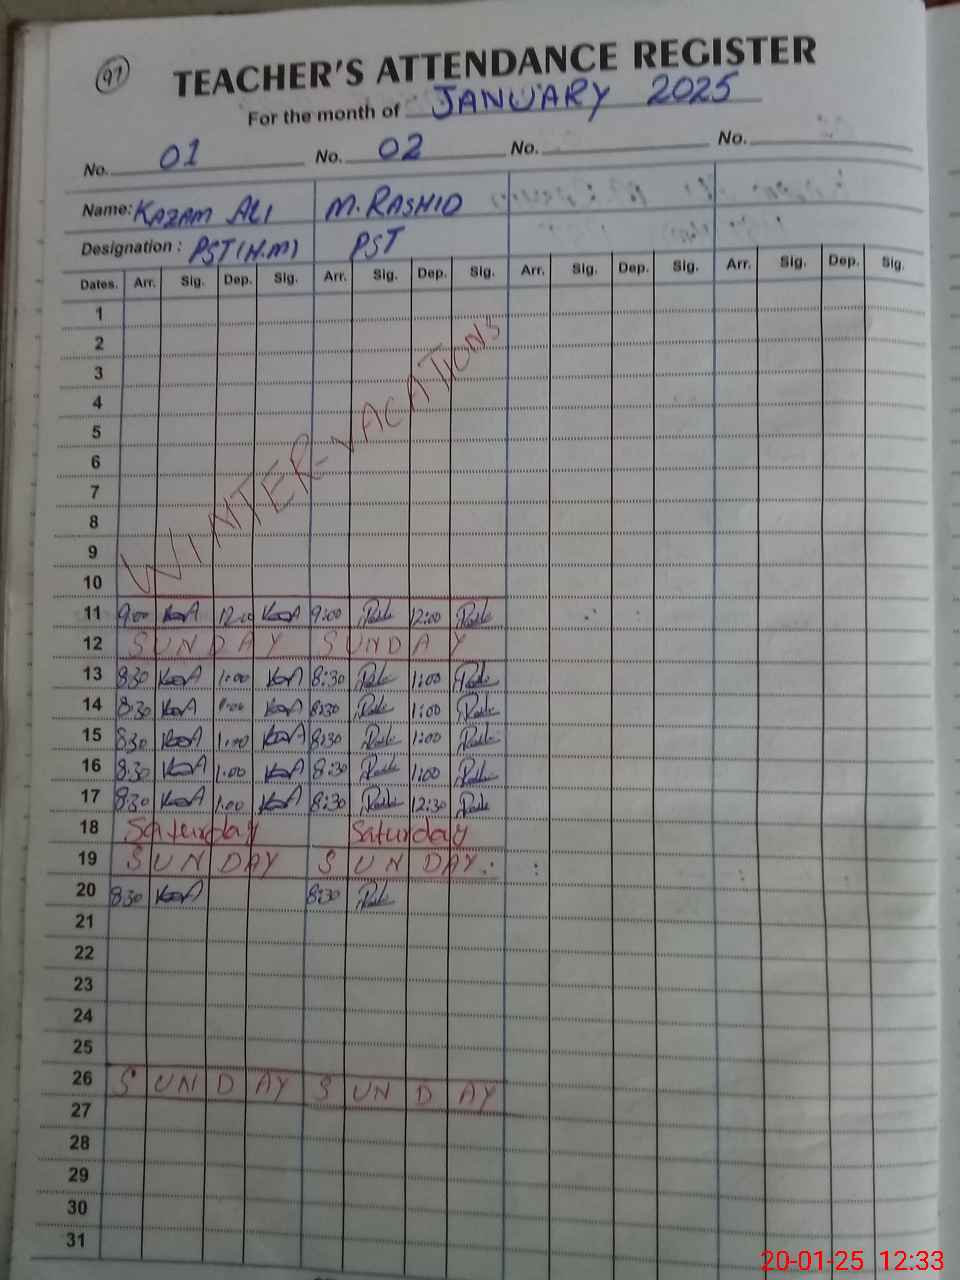 97
TEACHER'S ATTENDANCE REGISTER
For the month of JANUARY 2025
No. 01 No. 02 No. No.
Name: KAZAM ALI M. RASHID
Designation: PST(H.M) PST
Dates. Arr. Sig. Dep. Sig. Arr. Sig. Dep. Sig. Arr. Sig. Dep. Sig. Arr. Sig. Dep. Sig.
1
2
3
4
5
6
7
8
9
10
WINTER-VACATIONS
11 9:00 12:00 9:00 12:00
12 SUNDAY SUNDAY
13 8:30 1:00 8:30 1:00
14 8:30 1:00 8:30 1:00
15 8:30 1:00 8:30 1:00
16 8:30 1:00 8:30 1:00
17 8:30 1:00 8:30 12:30
18 Saturday Saturday
19 SUNDAY SUNDAY.
20 8:30 8:30
21
22
23
24
25
26 SUNDAY SUNDAY
27
28
29
30
31
20-01-25 12:33